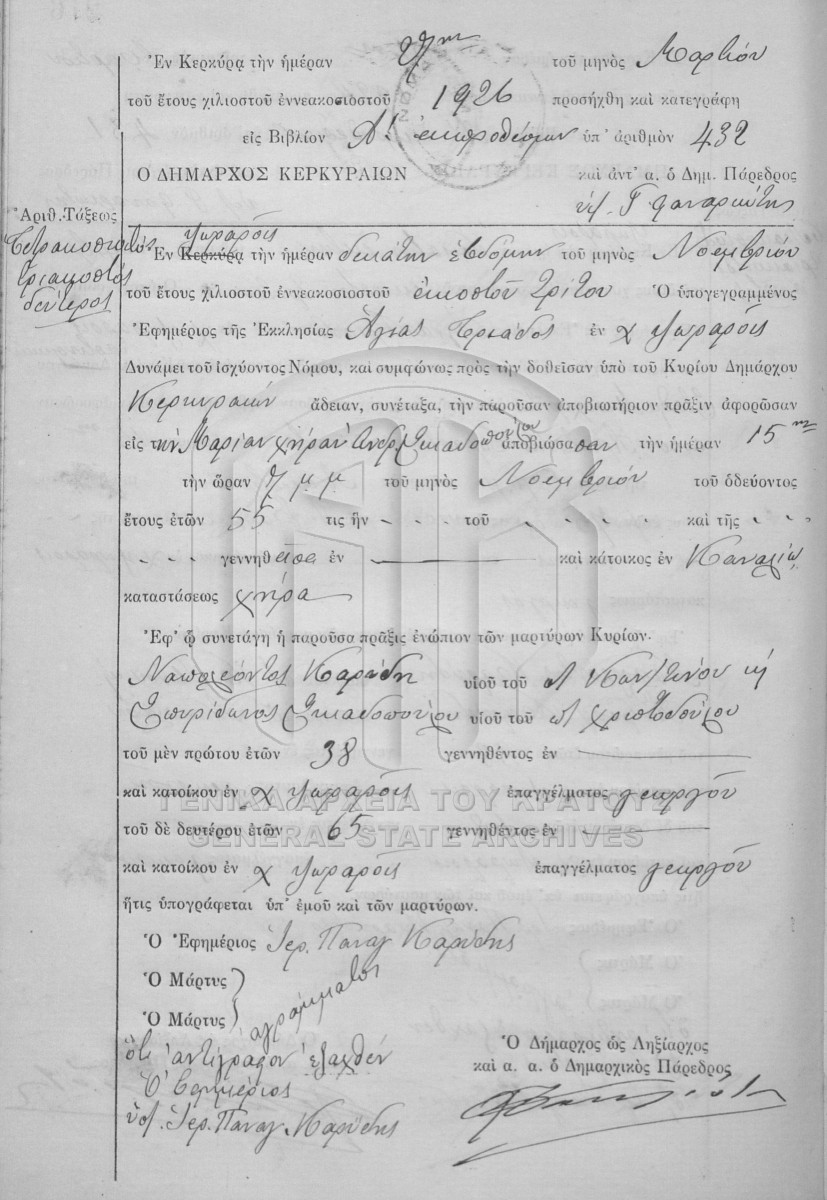 Ἐν Κερκύρᾳ τὴν ἡμέραν τοῦ μηνὸς Μαρτίου
τοῦ ἔτους χιλιοστοῦ ἐννεακοσιοστοῦ 1926 προσήχθη καὶ κατεγράφη
εἰς Βιβλίον Α! ἐκπροθέσμων ὑπ' ἀριθμὸν 432
Ο ΔΗΜΑΡΧΟΣ ΚΕΡΚΥΡΑΙΩΝ καὶ ἀντ' α. ὁ Δημ. Πάρεδρος
Ἀριθ. Τάξεως
Τετρακοσιοστὸς
τριακοστὸς
δεύτερος
Ψωραροῖς
Ἐν Κερκύρᾳ τὴν ἡμέραν δεκάτην ἑβδόμην τοῦ μηνὸς Νοεμβρίου
τοῦ ἔτους χιλιοστοῦ ἐννεακοσιοστοῦ εἰκοστοῦ τρίτου Ὁ ὑπογεγραμμένος
Ἐφημέριος τῆς Ἐκκλησίας Ἁγίας Τριάδος ἐν χ Ψωραροῖς
Δυνάμει τοῦ ἰσχύοντος Νόμου, καὶ συμφώνως πρὸς τὴν δοθεῖσαν ὑπὸ τοῦ Κυρίου Δημάρχου
Κερκυραίων ἄδειαν, συνέταξα, τὴν παροῦσαν ἀποβιωτήριον πρᾶξιν ἀφορῶσαν
εἰς τὴν Μαρίαν χήραν Ἀνδρ. Σκιαδοπούλου ἀποβιώσασαν τὴν ἡμέραν 15 ην
τὴν ὥραν 7 μ μ τοῦ μηνὸς Νοεμβρίου τοῦ ὁδεύοντος
ἔτους ἐτῶν 55 τις ἦν τοῦ καὶ τῆς
γεννηθεῖσα ἐν καὶ κάτοικος ἐν Καναλίῳ
καταστάσεως χήρα
Ἐφ' ᾧ συνετάγη ἡ παροῦσα πρᾶξις ἐνώπιον τῶν μαρτύρων Κυρίων.
Ναπολέοντος Καρύδη υἱοῦ τοῦ Κων/τίνου κὴ
Σπυρίδωνος Σκιαδοπούλου υἱοῦ τοῦ Χριστοδούλου
τοῦ μὲν πρώτου ἐτῶν 38 γεννηθέντος ἐν
καὶ κατοίκου ἐν χ Ψωραροῖς ἐπαγγέλματος γεωργοῦ
ΓΕΝΙΚΑ ΑΡΧΕΙΑ ΤΟΥ ΚΡΑΤΟΥΣ
τοῦ δὲ δευτέρου ἐτῶν 65 γεννηθέντος ἐν
GENERAL STATE ARCHIVES
καὶ κατοίκου ἐν χ Ψωραροῖς ἐπαγγέλματος γεωργοῦ
ἥτις ὑπογράφεται ὑπ' ἐμοῦ καὶ τῶν μαρτύρων.
Ὁ Ἐφημέριος Ἱερ. Παναγ Καρύδης
Ὁ Μάρτυς
Ὁ Μάρτυς ἀγράμματοι
ὅτι ἀντίγραφον ἐξαχθέν
Ὁ Ἐφημέριος
ὑπ. Ἱερ. Παναγ. Καρύδης
Ὁ Δήμαρχος ὡς Ληξίαρχος
καὶ α. α. ὁ Δημαρχικὸς Πάρεδρος